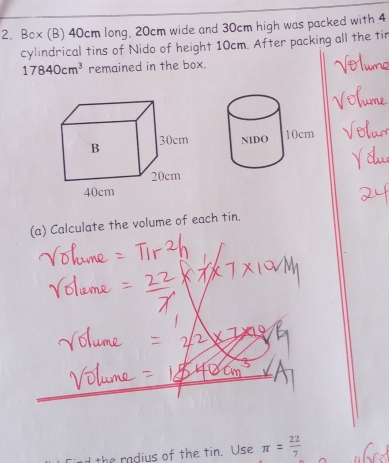 2. Box (B) 40cm long, 20cm wide and 30cm high was packed with 4
cylindrical tins of Nido of height 10cm. After packing all the tin
17840cm³ remained in the box.
Volume
Volume
Volum
Volu
24
B
30cm
20cm
40cm
NIDO
10cm
(a) Calculate the volume of each tin.
Volume = πr²h
Volume = 22/7 × 7 × 7 × 10 ✓M1
Volume = 22 × 7 × 10 ✓B1
Volume = 1540cm³ ✓A1
the radius of the tin. Use π = 22/7